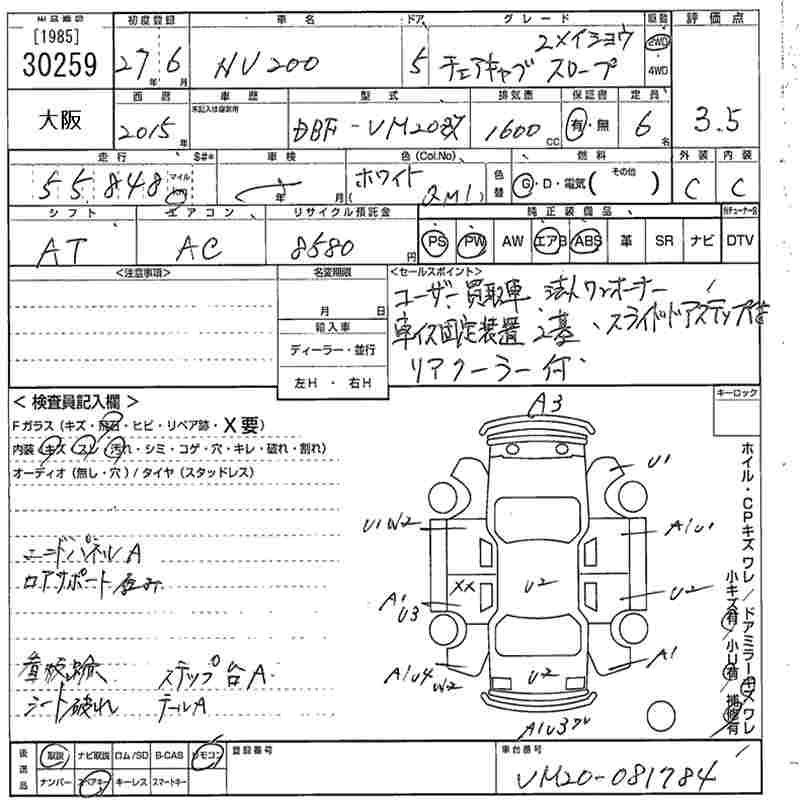 出品番号 初度登録 車名 ドア グレード 駆動 評価点
[1985]
30259 27年6月 NV200 5 2メイショウ
チェアキャブ スロープ 2WD 4WD 3.5
大阪 西暦 車歴 型式 排気量 保証書 定員
未記入は自家用
2015年 DBF-VM20改 1600cc 有・無 6名
走行 S#* 車検 色(Col.No) 色替 燃料 外装 内装
55,848 マイル km 年 月 ホワイト (QM1) G・D・電気( その他 ) C C
シフト エアコン リサイクル預託金 純正装備品 外チューナー名
AT AC 8580円 PS PW AW エアB ABS 革 SR ナビ DTV
<注意事項> 名変期限 <セールスポイント>
月 日
輸入車
ディーラー・並行
左H・右H
ユーザー買取車 法人ワンオーナー
車イス固定装置 2基、スライドドアステップ付
リアクーラー付
<検査員記入欄> キーロック
Fガラス(キズ・飛石・ヒビ・リペア跡・X要)
内装(キズ・スレ・汚れ・シミ・コゲ・穴・キレ・破れ・割れ)
オーディオ(無し・穴)/タイヤ(スタッドレス)
エンドパネルA
ロアサポート歪み
シート破れ
ステップ台A
テールA
A3
U1
U1 W2
A1U1
XX
U2
U2
A1
U3
A1U4
W2
U2
A1
A1U3
ホイル・CPキズ ワレ/ドアミラーキズ ワレ
小キズ有/小U有/補修有
後送品 取説 ナビ取説 ロム/SD B-CAS リモコン 登録番号 車台番号
ナンバー スペアキー キーレス スマートキー VM20-081784